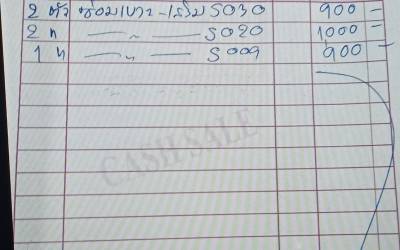 2 ตัว ซ่อมเบาะ-เสริม S030 900 -
2 " —— " —— S020 1000 -
1 " —— " —— S009 900 -
CASH SALE